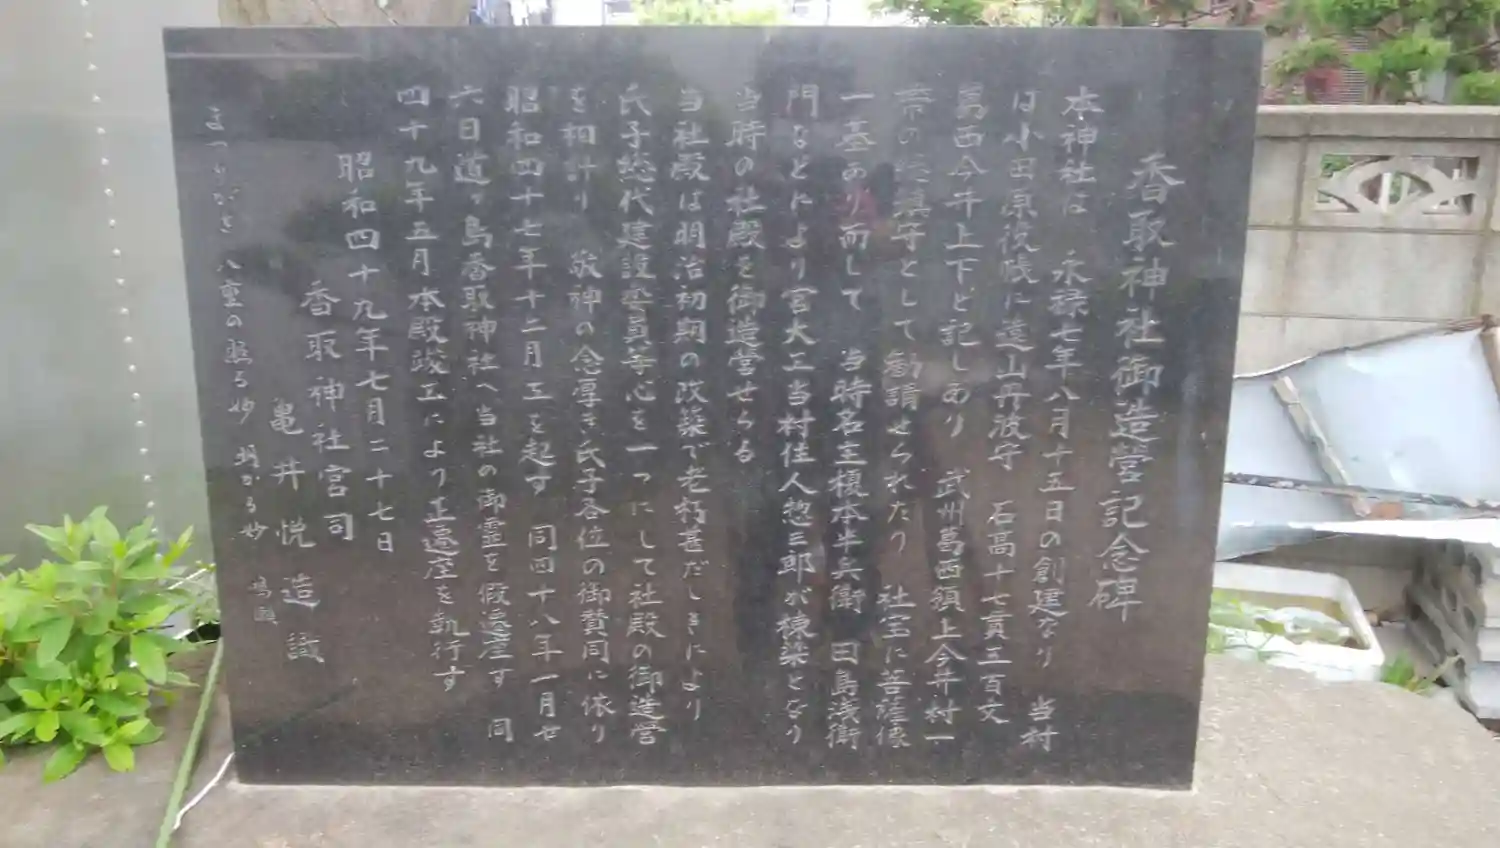 香取神社御造営記念碑
本神社は 永禄七年八月十五日の創建なり 当村
は小田原役帳に遠山丹波守 石高十七貫五百文
葛西今井上下ど記しあり 武州葛西領上今井村一
帯の総鎮守として勧請せられたり 社宝に菩薩像
一基あり而して 当時名主榎本半兵衛 田島浅衛
門などにより宮大工当村住人惣三郎が棟梁となり
当時の社殿を御造営せらる
当社殿は明治初期の改築で老朽甚だしきにより
氏子総代建設委員等心を一つにして社殿の御造営
を相計り 敬神の念厚き氏子各位の御賛同に依り
昭和四十七年十二月工を起す 同四十八年一月廿
六日道ヶ島香取神社へ当社の御霊を假遷座す 同
四十九年五月本殿竣工により正遷座を執行す
昭和四十九年七月二十七日
香取神社宮司
亀井悦造識
まつりがき 八重の照る妙 明かる妙